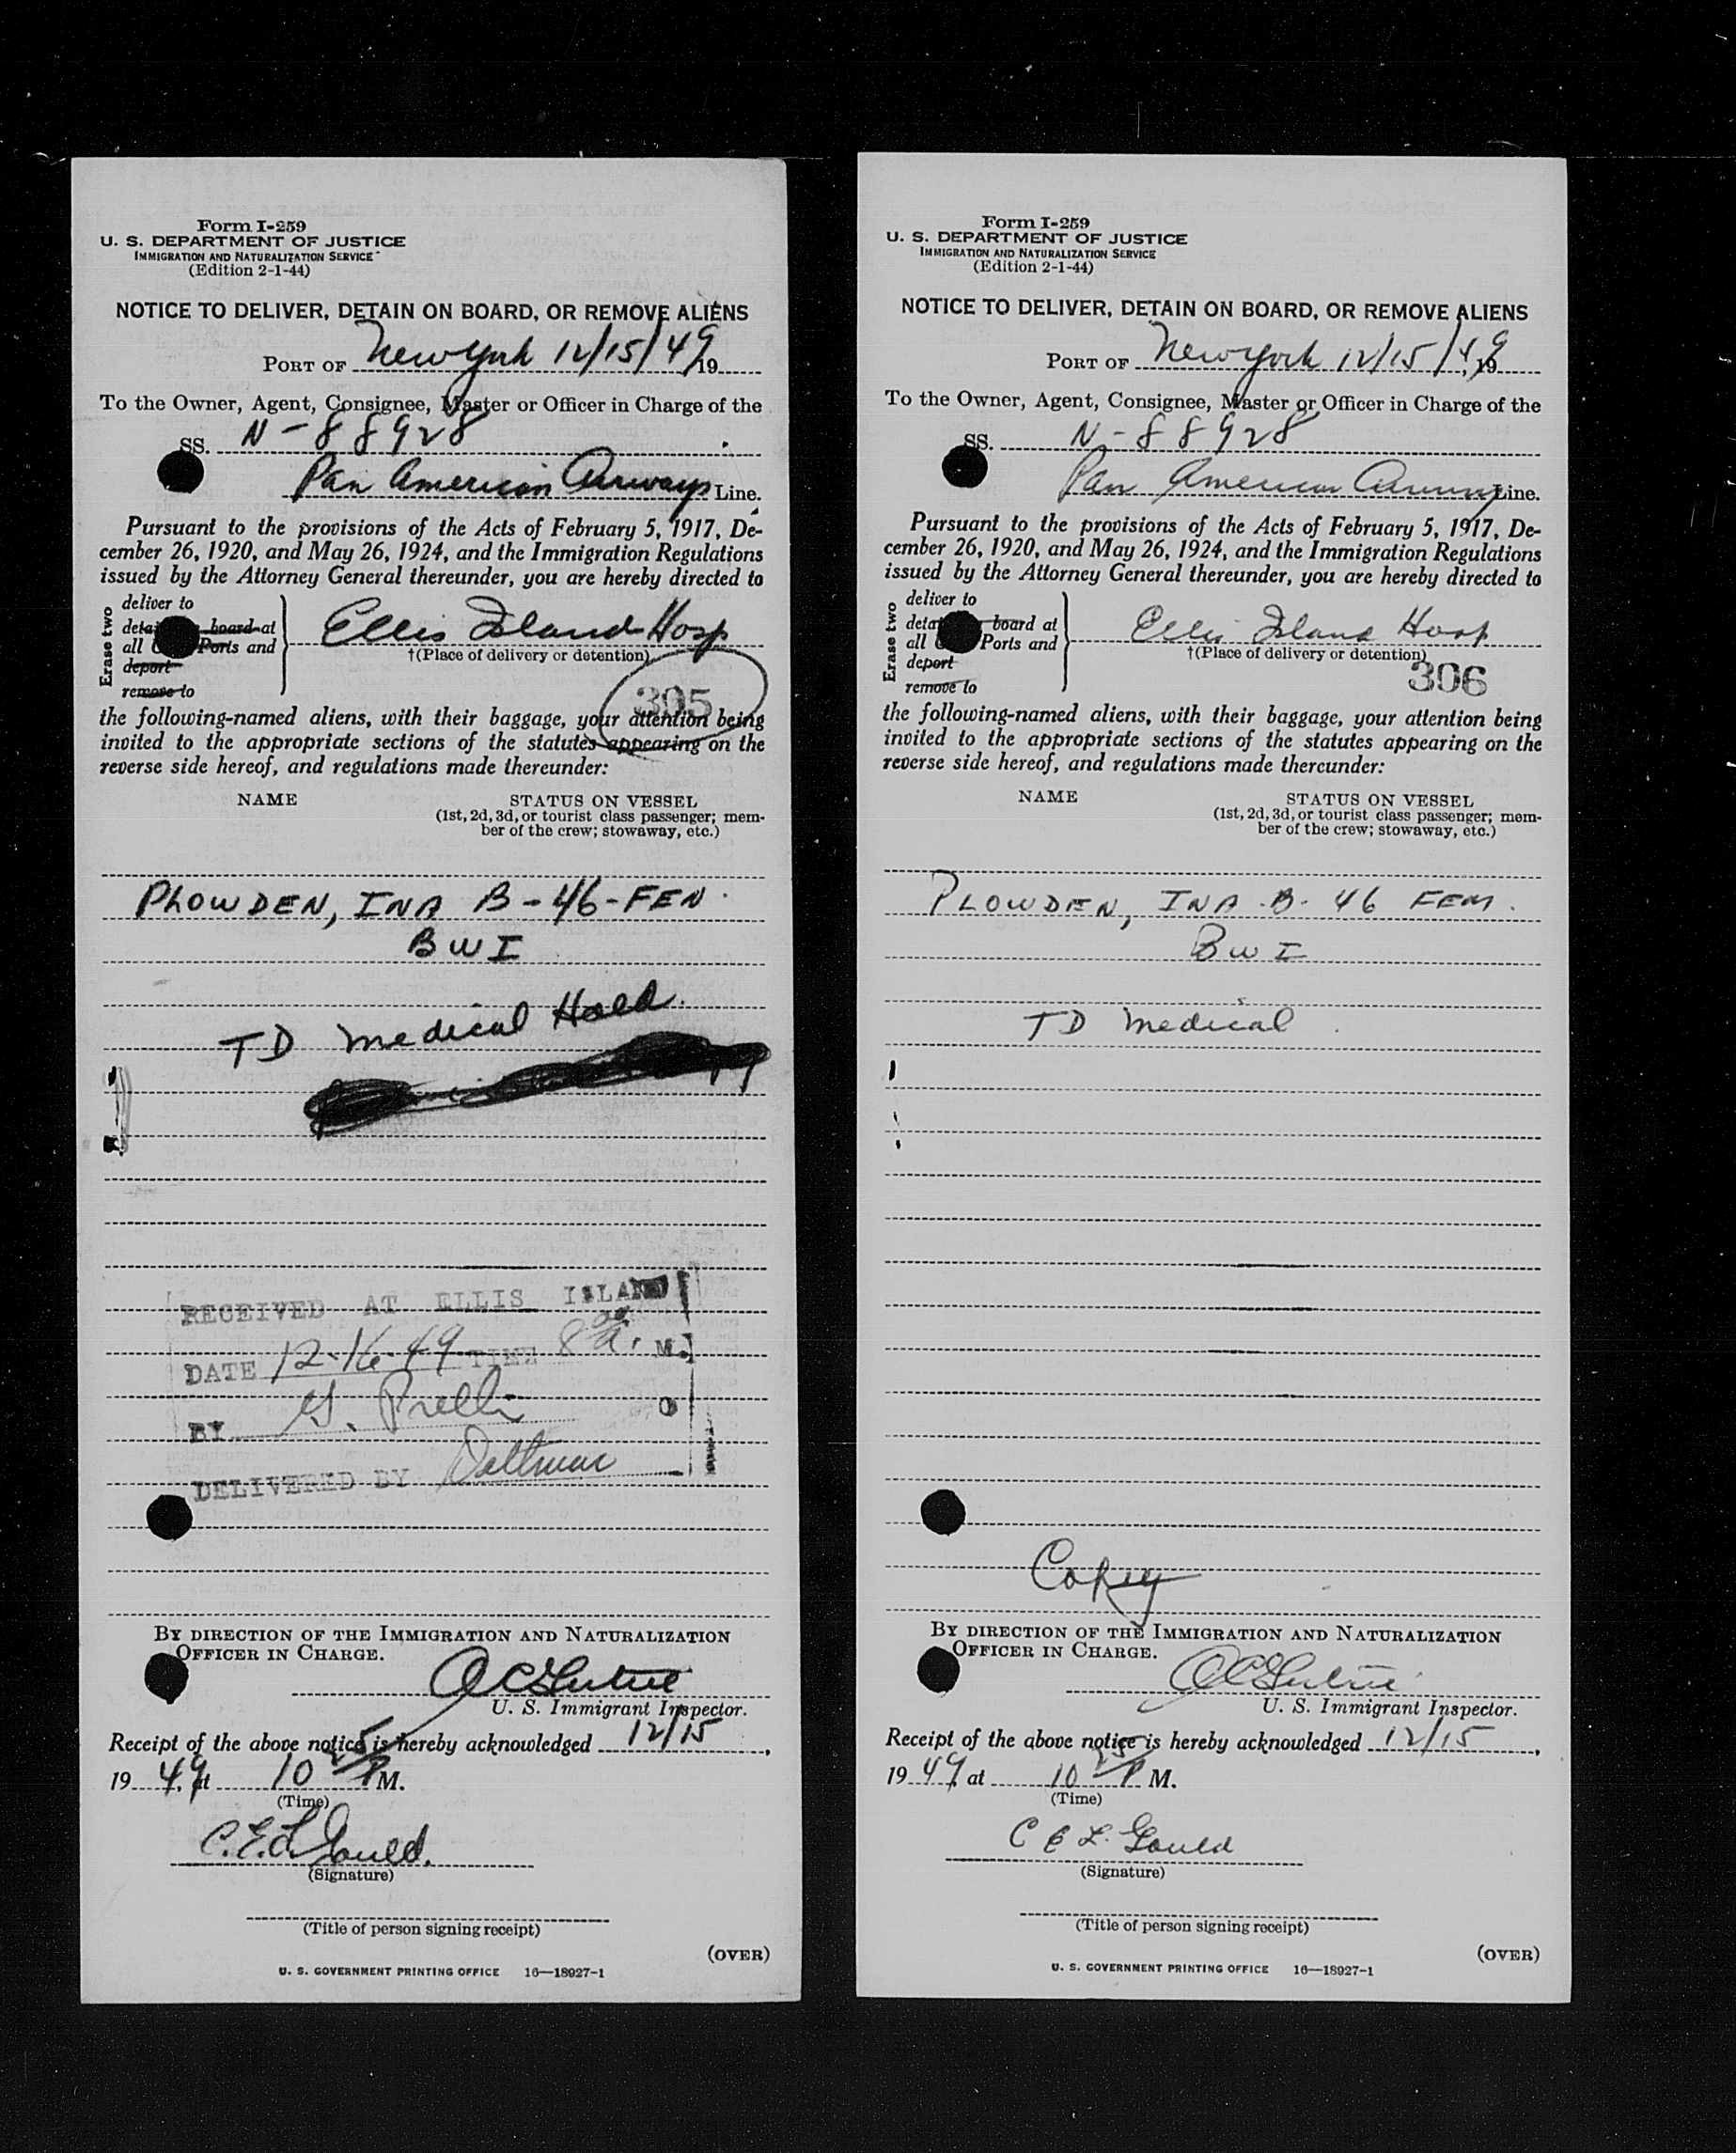 Form I-259
U. S. DEPARTMENT OF JUSTICE
IMMIGRATION AND NATURALIZATION SERVICE
(Edition 2-1-44)
NOTICE TO DELIVER, DETAIN ON BOARD, OR REMOVE ALIENS
PORT OF New York 12/15/49 19
To the Owner, Agent, Consignee, Master or Officer in Charge of the
SS. N-88928
Pan American Airways Line.
Pursuant to the provisions of the Acts of February 5, 1917, De-
cember 26, 1920, and May 26, 1924, and the Immigration Regulations
issued by the Attorney General thereunder, you are hereby directed to
Erase two
deliver to
board at
all Ports and
deport
remove to
Ellis Island Hosp
†(Place of delivery or detention)
305
the following-named aliens, with their baggage, your attention being
invited to the appropriate sections of the statutes appearing on the
reverse side hereof, and regulations made thereunder:
NAME STATUS ON VESSEL
(1st, 2d, 3d, or tourist class passenger; mem-
ber of the crew; stowaway, etc.)
PLOWDEN, INA B-46-FEM
BWI
TD Medical Hold.
RECEIVED AT ELLIS ISLAND
DATE 12-16-49 TIME 8 A. M.
BY
DELIVERED BY
BY DIRECTION OF THE IMMIGRATION AND NATURALIZATION
OFFICER IN CHARGE.
U. S. Immigrant Inspector.
Receipt of the above notice is hereby acknowledged 12/15,
1949, at 10 25 P M.
(Time)
C.E.L. Gould.
(Signature)
(Title of person signing receipt)
(OVER)
U. S. GOVERNMENT PRINTING OFFICE 16—18927-1
Form I-259
U. S. DEPARTMENT OF JUSTICE
IMMIGRATION AND NATURALIZATION SERVICE
(Edition 2-1-44)
NOTICE TO DELIVER, DETAIN ON BOARD, OR REMOVE ALIENS
PORT OF New York 12/15/49 19
To the Owner, Agent, Consignee, Master or Officer in Charge of the
SS. N-88928
Pan American Airways Line.
Pursuant to the provisions of the Acts of February 5, 1917, De-
cember 26, 1920, and May 26, 1924, and the Immigration Regulations
issued by the Attorney General thereunder, you are hereby directed to
Erase two
deliver to
board at
all Ports and
deport
remove to
Ellis Island Hosp
†(Place of delivery or detention)
306
the following-named aliens, with their baggage, your attention being
invited to the appropriate sections of the statutes appearing on the
reverse side hereof, and regulations made thereunder:
NAME STATUS ON VESSEL
(1st, 2d, 3d, or tourist class passenger; mem-
ber of the crew; stowaway, etc.)
PLOWDEN, INA B. 46 FEM.
BWI
TD Medical
Copy
BY DIRECTION OF THE IMMIGRATION AND NATURALIZATION
OFFICER IN CHARGE.
U. S. Immigrant Inspector.
Receipt of the above notice is hereby acknowledged 12/15,
1949, at 10 25 P M.
(Time)
C E L. Gould
(Signature)
(Title of person signing receipt)
(OVER)
U. S. GOVERNMENT PRINTING OFFICE 16—18927-1